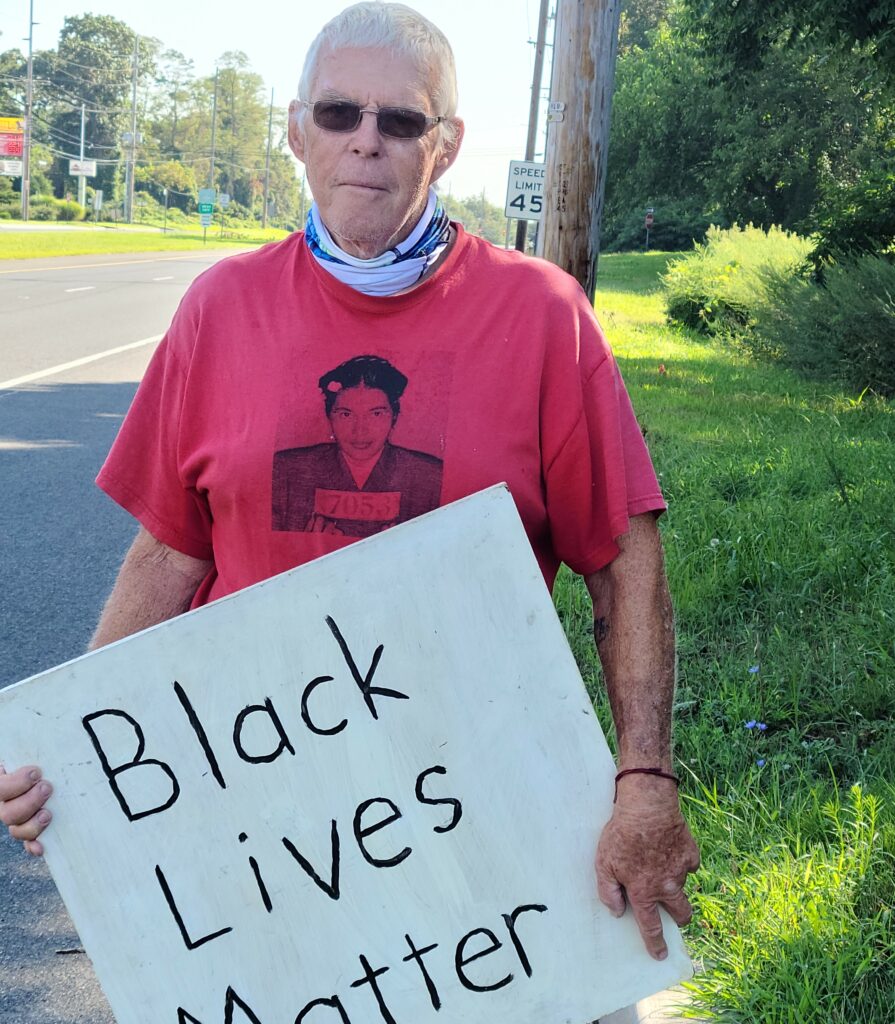 SPEED
LIMIT
45
7053
Black
Lives
Matter